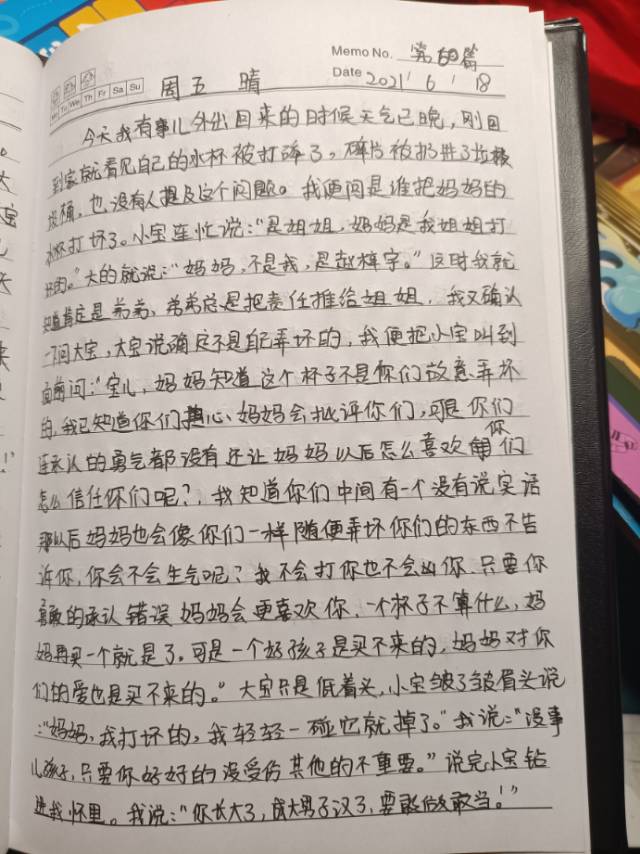 Memo No. 第60篇
Mo Tu We Th Fr Sa Su
周五 晴
Date 2021 / 6 / 18
今天我有事儿外出回来的时候天气已晚，刚回
到家就看见自己的水杯被打碎了，碎片被扔进了垃圾
圾桶，也没有人提及这个问题。我便问是谁把妈妈的
水杯打坏了。小宝连忙说："是姐姐，妈妈是我姐姐打
坏的。"大的就说："妈妈，不是我，是赵梓宇。"这时我就
知道肯定是弟弟，弟弟总是把责任推给姐姐，我又确认
一下问大宝，大宝说确定不是自己弄坏的，我便把小宝叫到
面前问："宝儿，妈妈知道这个杯子不是你们故意弄坏
的，我已知道你们担心妈妈会批评你们，可是你们
连承认的勇气都没有还让妈妈以后怎么喜欢你们
怎么信任你们呢？，我知道你们中间有一个没有说实话
那以后妈妈也会像你们一样随便弄坏你们的东西不告
诉你，你会不会生气呢？我不会打你也不会凶你、只要你
勇敢的承认错误妈妈会更喜欢你，一个杯子不算什么，妈
妈再买一个就是了。可是一个好孩子是买不来的，妈妈对你
们的爱也是买不来的。"大宝只是低着头，小宝皱了皱眉头说
："妈妈，我打坏的，我轻轻一碰它就掉了。"我说："没事
儿孩子，只要你好好的没受伤其他的不重要。"说完小宝钻
进我怀里。我说："你长大了，成大男子汉了，要敢做敢当！"